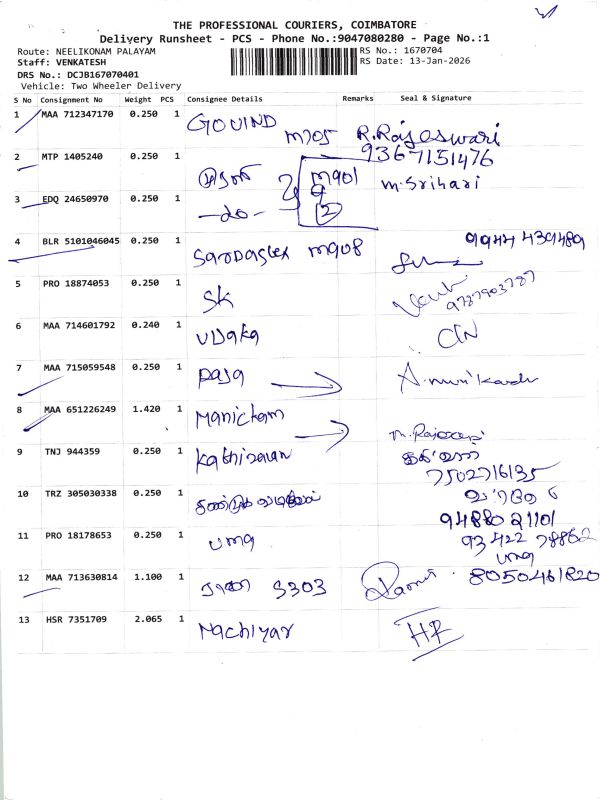 THE PROFESSIONAL COURIERS, COIMBATORE
Delivery Runsheet - PCS - Phone No.:9047080280 - Page No.:1
Route: NEELIKONAM PALAYAM RS No.: 1670704
Staff: VENKATESH RS Date: 13-Jan-2026
DRS No.: DCJB167070401
Vehicle: Two Wheeler Delivery
S No Consignment No Weight PCS Consignee Details Remarks Seal & Signature
1 MAA 712347170 0.250 1 GOVIND M705 R.Rajeswari
9367151476
2 MTP 1405240 0.250 1 M901 M.Srihari
3 EDQ 24650970 0.250 1 -do- 2
4 BLR 5101046045 0.250 1 M908 9944 439489
5 PRO 18874053 0.250 1 SK 9787903787
6 MAA 714601792 0.240 1 Udaka
7 MAA 715059548 0.250 1 Raja
8 MAA 651226249 1.420 1 Manickam
9 TNJ 944359 0.250 1 Kathiravan
7502716135
10 TRZ 305030338 0.250 1
94880 21101
11 PRO 18178653 0.250 1 uma 93422 78862
uma
12 MAA 713630814 1.100 1 S303 8050461820
13 HSR 7351709 2.065 1 Nachiyar